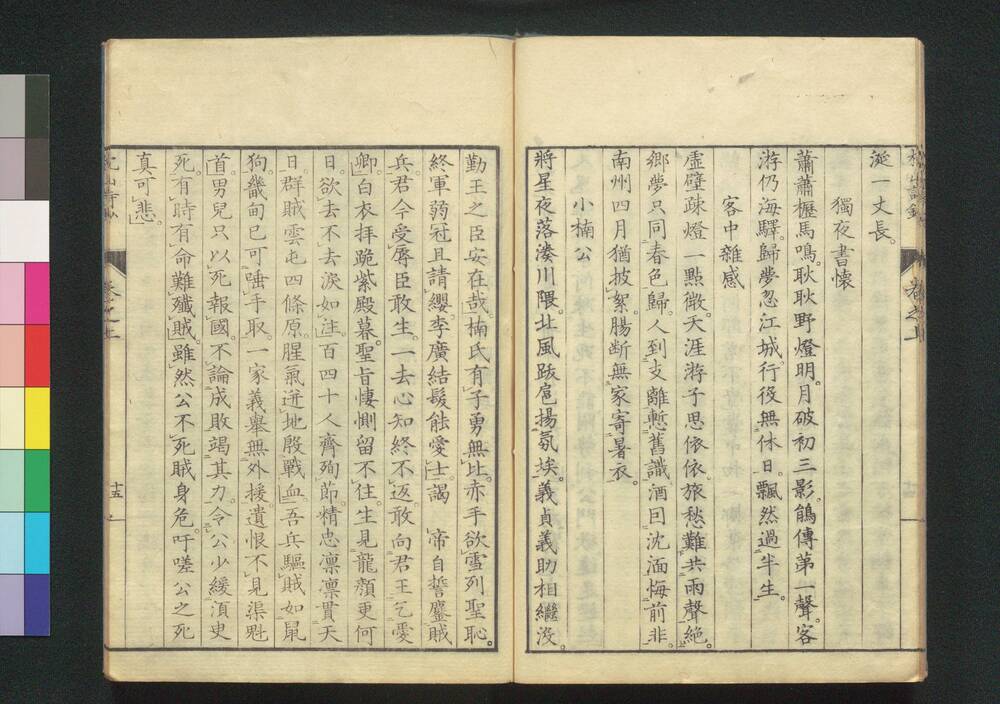 涎一丈長。
獨夜書懷
蕭蕭櫪馬鳴。耿耿野燈明。月破初三影。鵑傳第一聲。客
游仍海驛。歸夢忽江城。行役無休日。飄然過半生。
客中雜感
虛壁疎燈一點微。天涯游子思依依。旅愁難共雨聲絕。
鄉夢只同春色歸。人到支離慙舊識。酒囘沈湎悔前非。
南州四月猶披絮。腸斷無家寄暑衣。
小楠公
將星夜落湊川隈。北風跋扈揚氛埃。義貞義助相繼沒。
勤王之臣安在哉。楠氏有子勇無比。赤手欲雪列聖恥。
終軍弱冠且請纓。李廣結髮能愛士。謁 帝自誓鏖賊
兵。君今受辱臣敢生。一去心知終不返。敢向君王乞愛
卿。白衣拜跪紫殿暮。聖旨悽惻留不住。生見龍顏更何
日。欲去不去淚如注。百四十人齊殉節。精忠凛凛貫天
日。群賊雲屯四條原。腥氣迸地殷戰血。吾兵驅賊如鼠
狗。畿甸已可唾手取。一家義舉無外援。遺恨不見渠魁
首。男兒只以死報國。不論成敗竭其力。令公少緩須臾
死。有時有命難殲賊。雖然公不死賊身危。吁嗟公之死
真可悲。
卷之上
十五